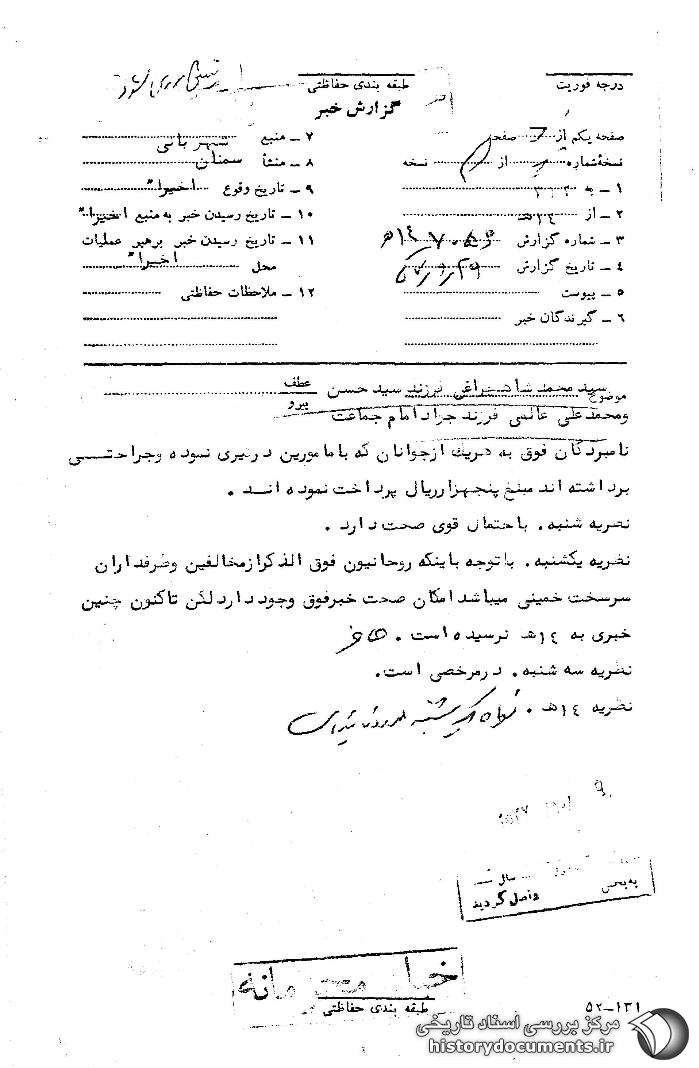 درجه فوریت
طبقه بندی حفاظتی
گزارش خبر
صفحه یکم از صفحه
نسخهٔ شماره از نسخه
۱ ـ به ۳۱۲
۲ ـ از ۱۴هـ
۳ ـ شماره گزارش
۴ ـ تاریخ گزارش
۵ ـ پیوست
۶ ـ گیرندگان خبر
۷ ـ منبع شهربانی
۸ ـ منشأ سمنان
۹ ـ تاریخ وقوع اخیراً
۱۰ ـ تاریخ رسیدن خبر به منبع اخیراً
۱۱ ـ تاریخ رسیدن خبر برهبر عملیات
محل اخیراً
۱۲ ـ ملاحظات حفاظتی
موضوع سید محمد شاهچراغی فرزند سید حسن
عطف
پیرو
ومحمدعلی عالمی فرزند جواد امام جماعت
نامبردگان فوق به هریک ازجوانان که با مامورین درگیری نموده وجراحتی
برداشته اند مبلغ پنجهزارریال پرداخت نموده اند .
نظریه شنبه. باحتمال قوی صحت دارد .
نظریه یکشنبه. باتوجه باینکه روحانیون فوق الذکرازمخالفین وطرفداران
سرسخت خمینی میباشد امکان صحت خبرفوق وجود دارد لکن تاکنون چنین
خبری به ۱۴هـ نرسیده است .
نظریه سه شنبه. درمرخصی است.
نظریه ۱۴هـ .
به بخش سال
واصل گردید
خیلی محرمانه
طبقه بندی حفاظتی
۵۲-۱۳۱
مرکز بررسی اسناد تاریخی
historydocuments.ir